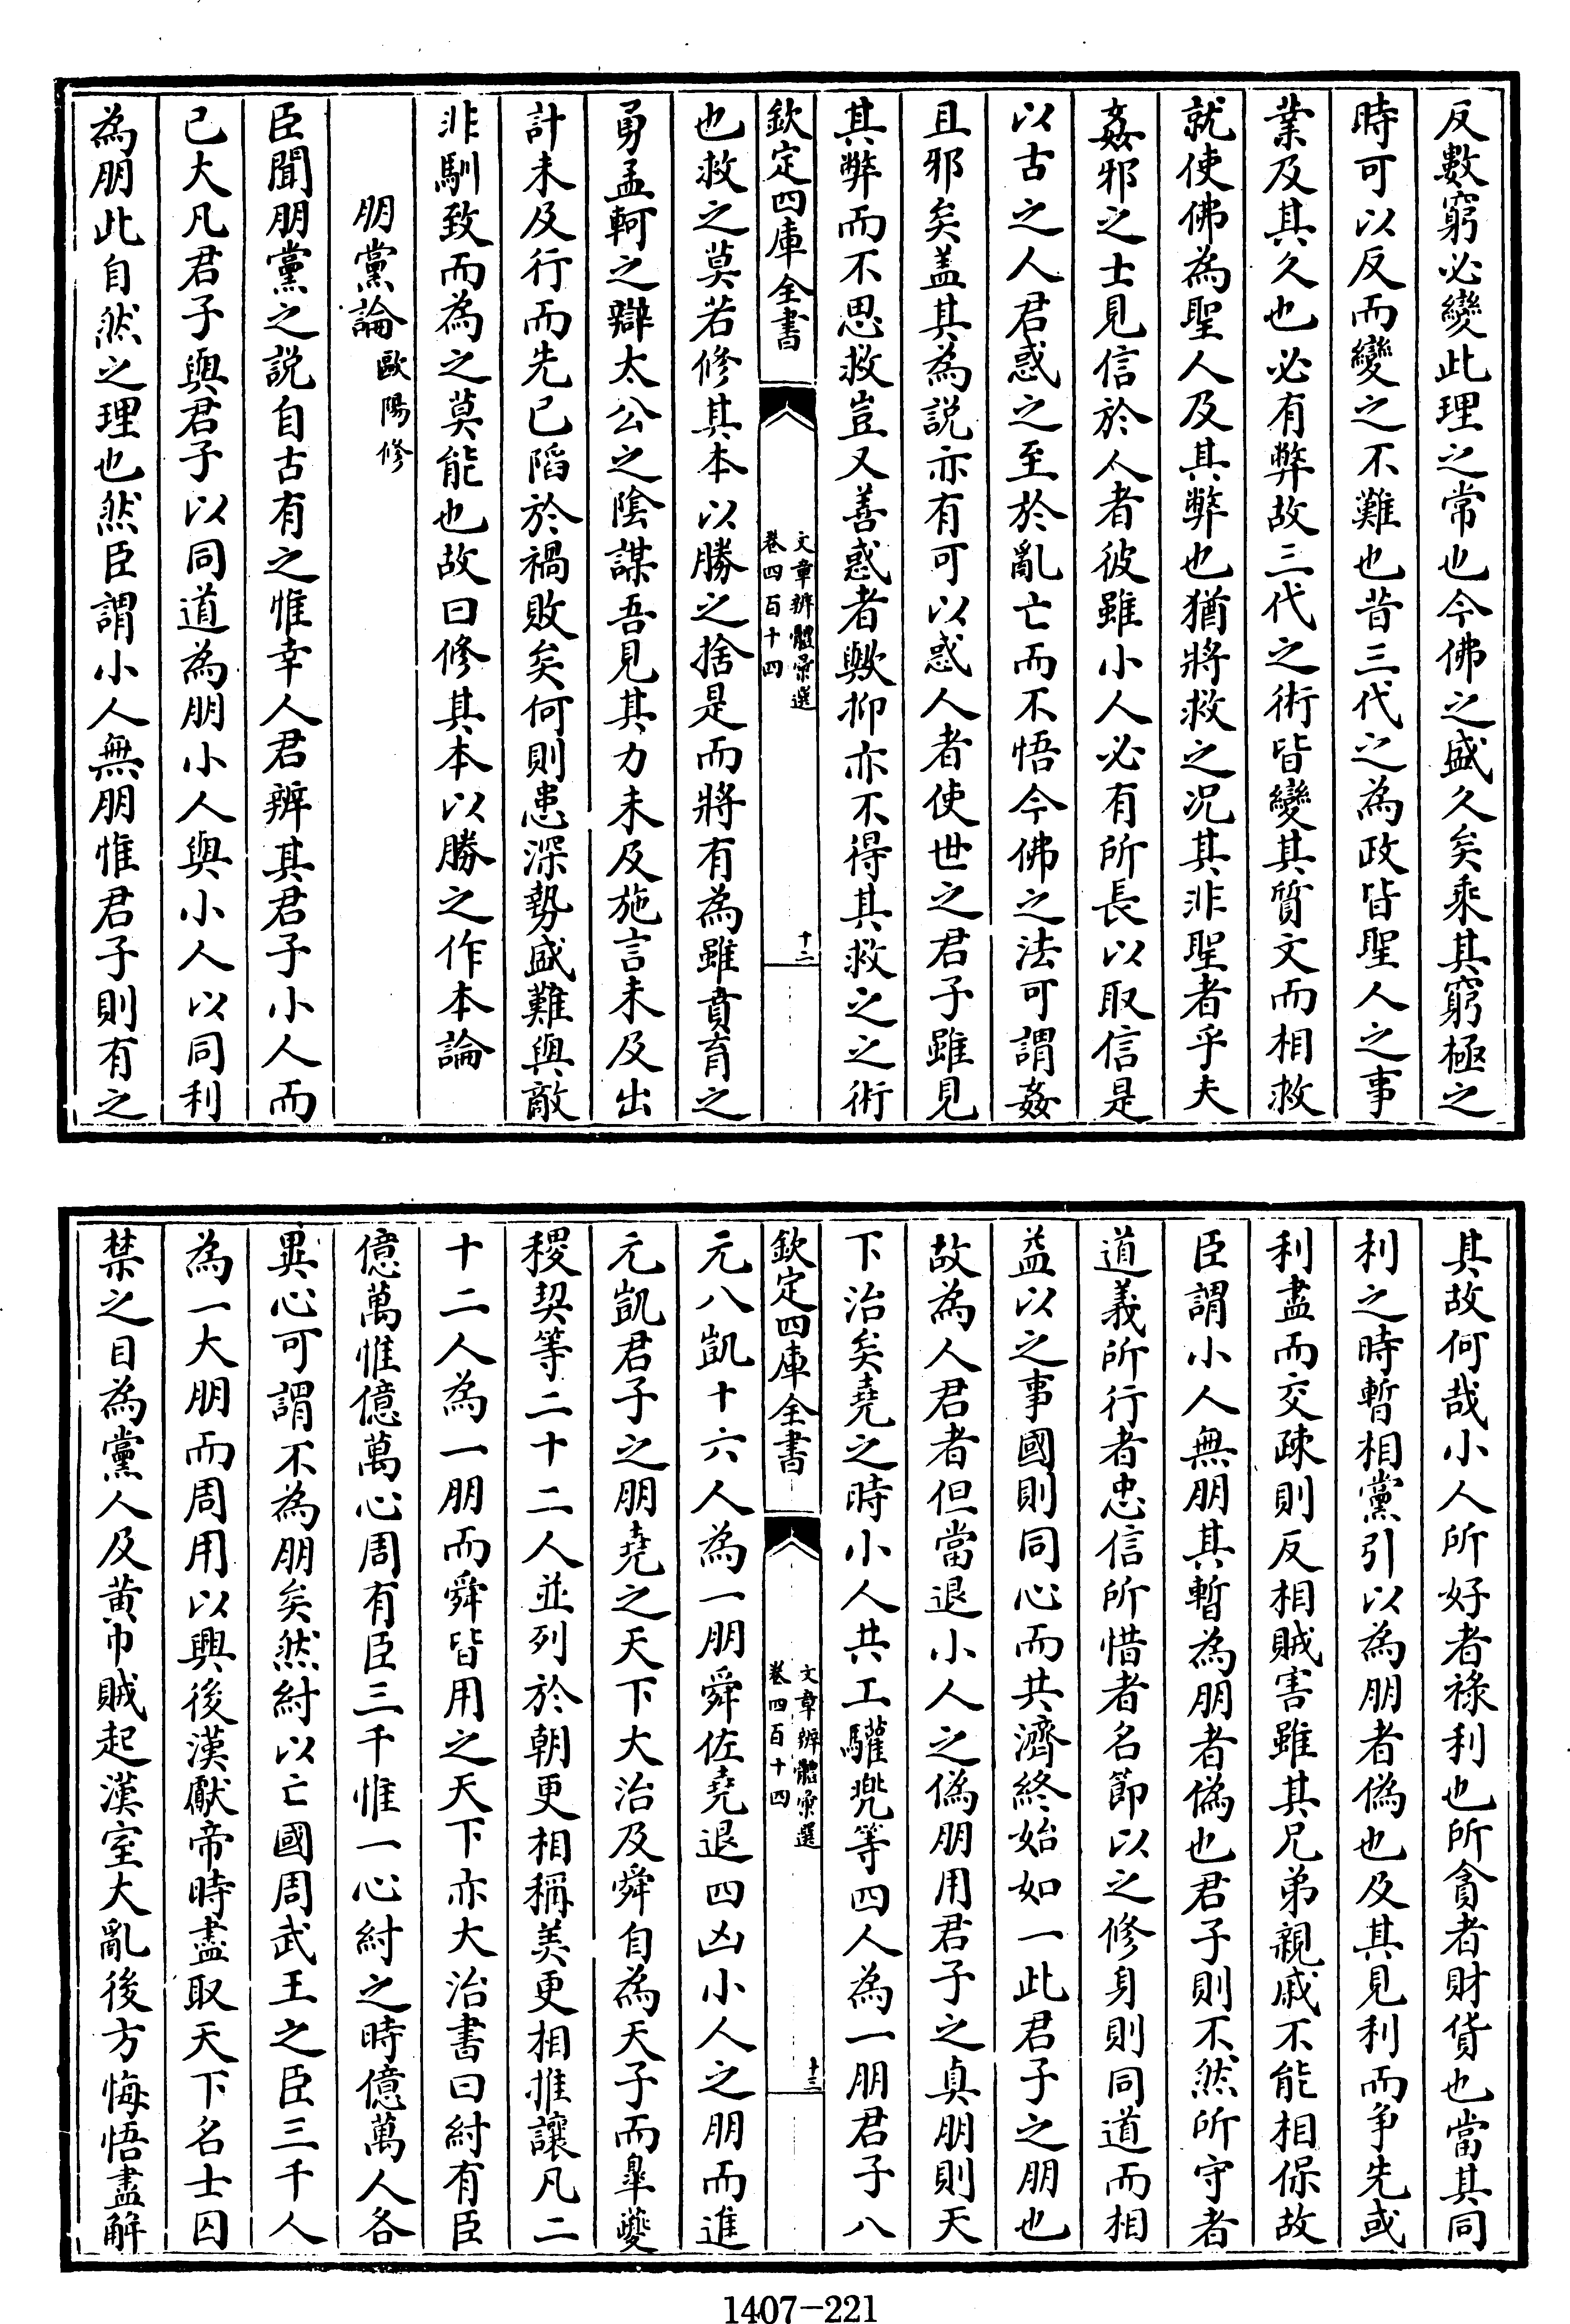 反數窮必變此理之常也今佛之盛久矣乘其窮極之
時可以反而變之不難也昔三代之為政皆聖人之事
業及其久也必有弊故三代之術皆變其質文而相救
就使佛為聖人及其弊也猶將救之况其非聖者乎夫
姦邪之士見信於人者彼雖小人必有所長以取信是
以古之人君惑之至於亂亡而不悟今佛之法可謂姦
且邪矣盖其為説亦有可以惑人者使世之君子雖見
其弊而不思救豈又善惑者歟抑亦不得其救之之術
欽定四庫全書
文章辨體彙選
卷四百十四
十二
也救之莫若修其本以勝之捨是而將有為雖賁育之
勇孟軻之辯太公之陰謀吾見其力未及施言未及出
計未及行而先已陷於禍敗矣何則患深勢盛難與敵
非馴致而為之莫能也故曰修其本以勝之作本論
朋黨論歐陽修
臣聞朋黨之説自古有之惟幸人君辨其君子小人而
已大凡君子與君子以同道為朋小人與小人以同利
為朋此自然之理也然臣謂小人無朋惟君子則有之
其故何哉小人所好者祿利也所貪者財貨也當其同
利之時暫相黨引以為朋者偽也及其見利而争先或
利盡而交疎則反相賊害雖其兄弟親戚不能相保故
臣謂小人無朋其暫為朋者偽也君子則不然所守者
道義所行者忠信所惜者名節以之修身則同道而相
益以之事國則同心而共濟終始如一此君子之朋也
故為人君者但當退小人之偽朋用君子之真朋則天
下治矣堯之時小人共工驩兜等四人為一朋君子八
欽定四庫全書
文章辨體彙選
卷四百十四
十三
元八凱十六人為一朋舜佐堯退四凶小人之朋而進
元凱君子之朋堯之天下大治及舜自為天子而臯夔
稷契等二十二人並列於朝更相稱美更相推讓凡二
十二人為一朋而舜皆用之天下亦大治書曰紂有臣
億萬惟億萬心周有臣三千惟一心紂之時億萬人各
異心可謂不為朋矣然紂以亡國周武王之臣三千人
為一大朋而周用以興後漢獻帝時盡取天下名士囚
禁之目為黨人及黄巾賊起漢室大亂後方悔悟盡解
1407-221